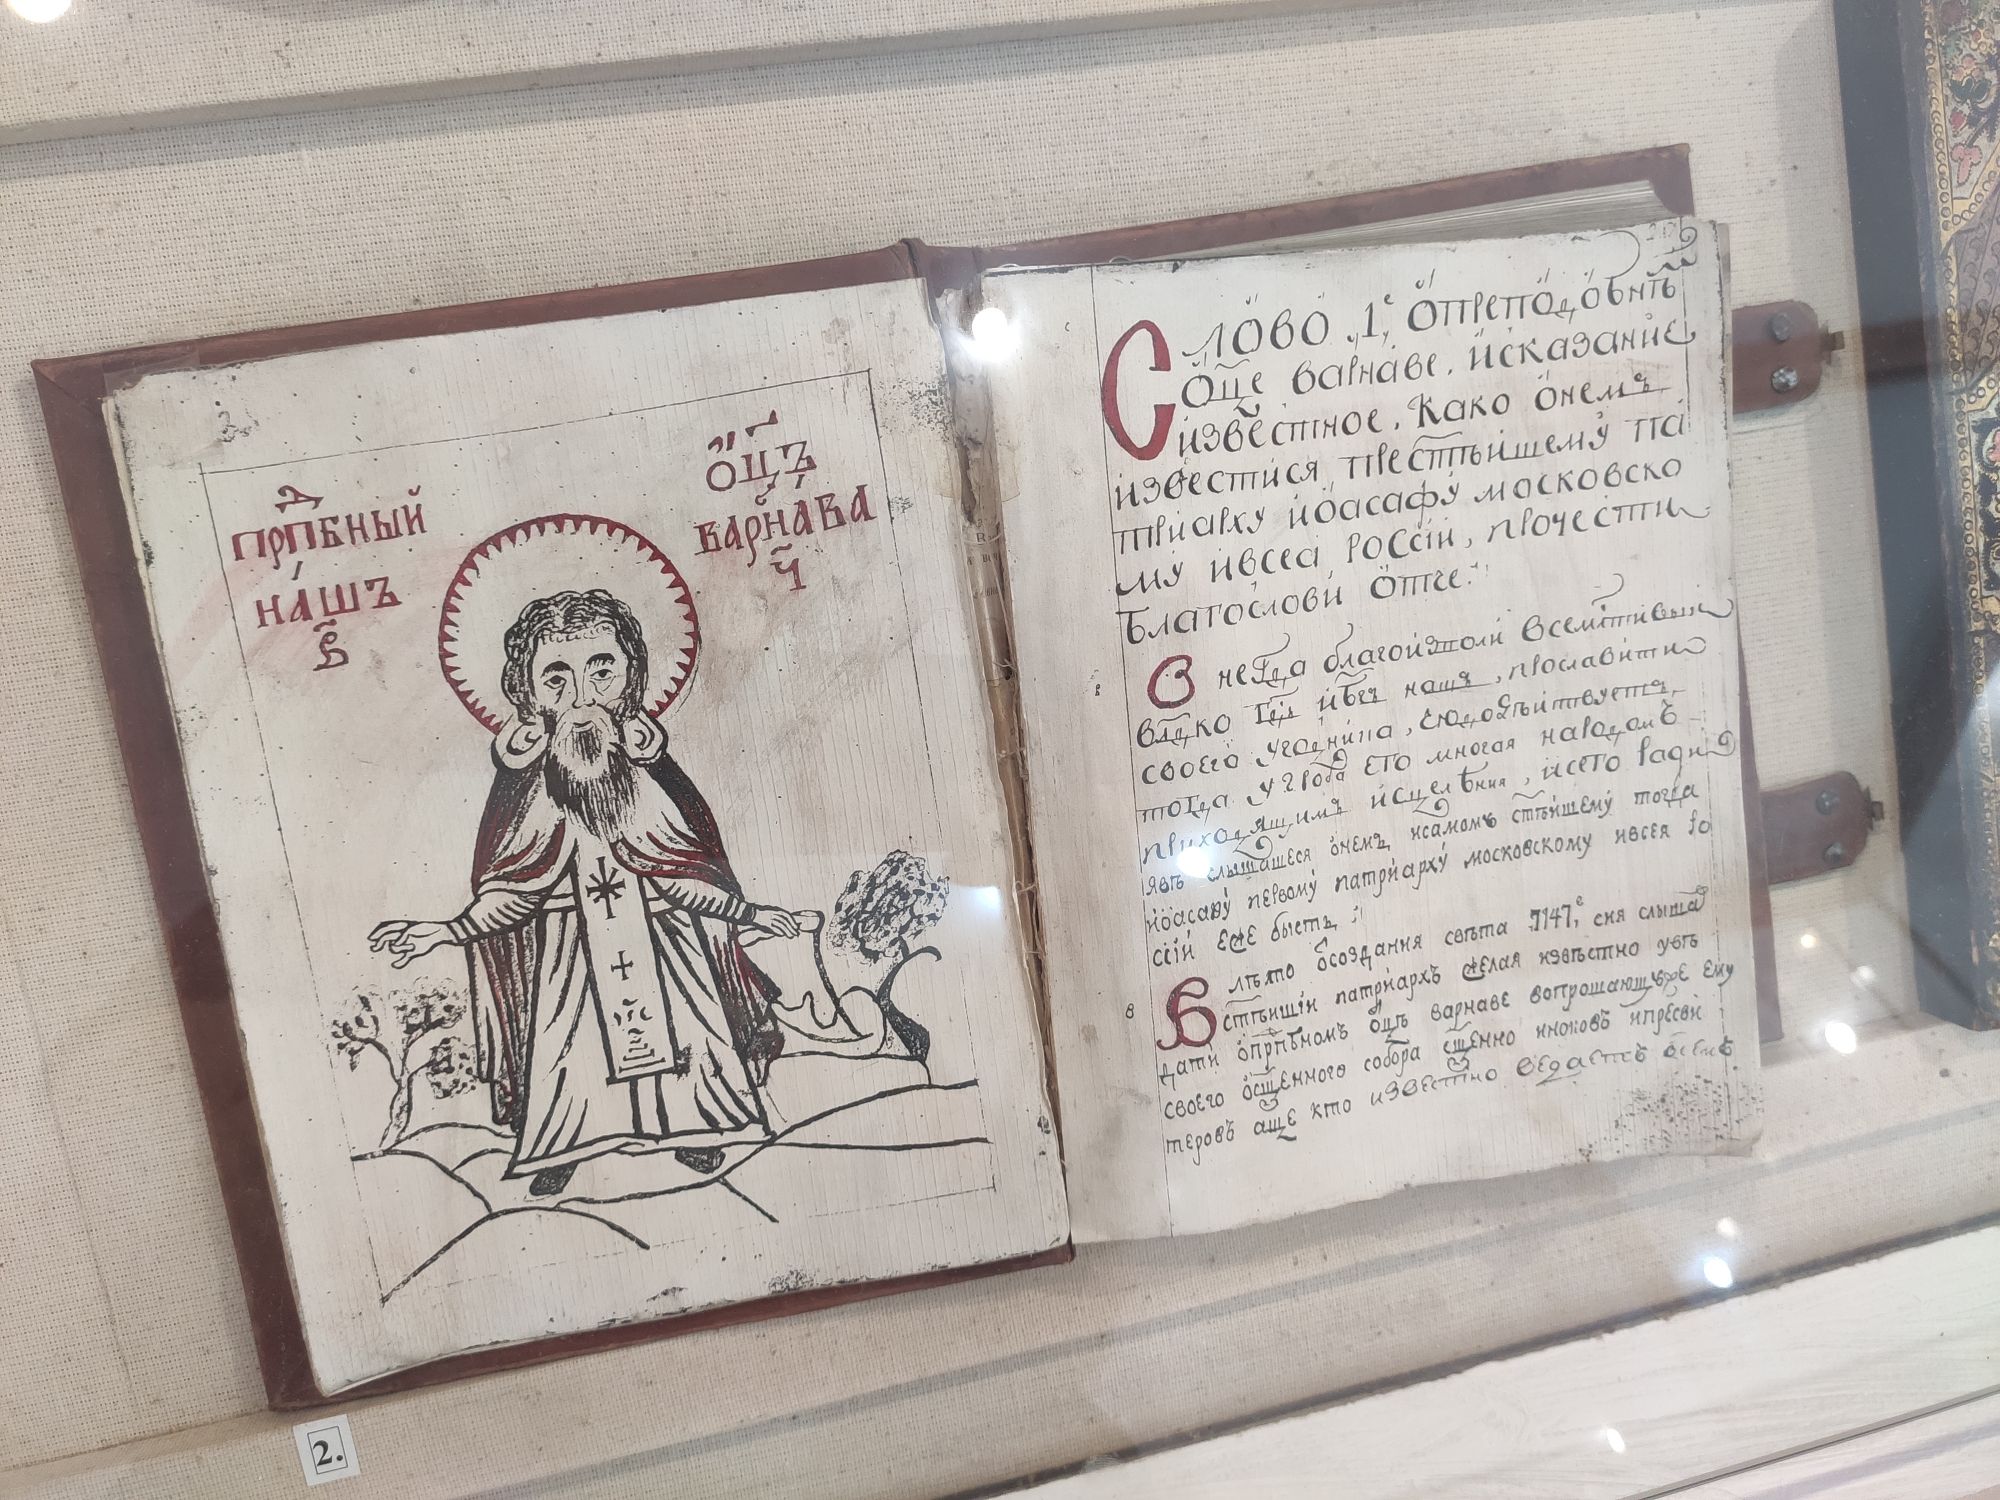 прпбный
д
нашъ
в
оц҃ъ
варнава
ч
Слово 1е о преподобнѣм
оц҃е варнаве. и сказание
известное. како о нем
известися престѣйшему па
триарху иоасафу московско
му и всеа россiи, прочести
благослови отче:
в неГда благоизволи всемлтивыи
влдко Гдь и бгъ нашъ, прославити
своего угодника, сюдодѣйтвуетъ
тогда у гроба его многая народомъ
приходящимъ исцелѣния, и сего ради
явъ слышашеся о немъ и самомъ стѣйшему тогда
иоасафу первому патриарху московскому и всея ро
ссiй еже бысть :
В лѣто о создания свѣта 7147,е сия слыша
стѣишiи патриархъ желая извѣстно увѣ
дати о прпбномъ оцѣ варнаве вопрошающъже ему
своего осщенного собора сщенно иноковъ и пресви
теровъ аще кто известно
2.